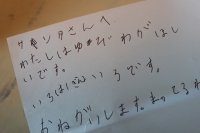 サンタさんへ
わたしはゆびわがほし
いです。
いろは いろです。
おねがいします。まってるね